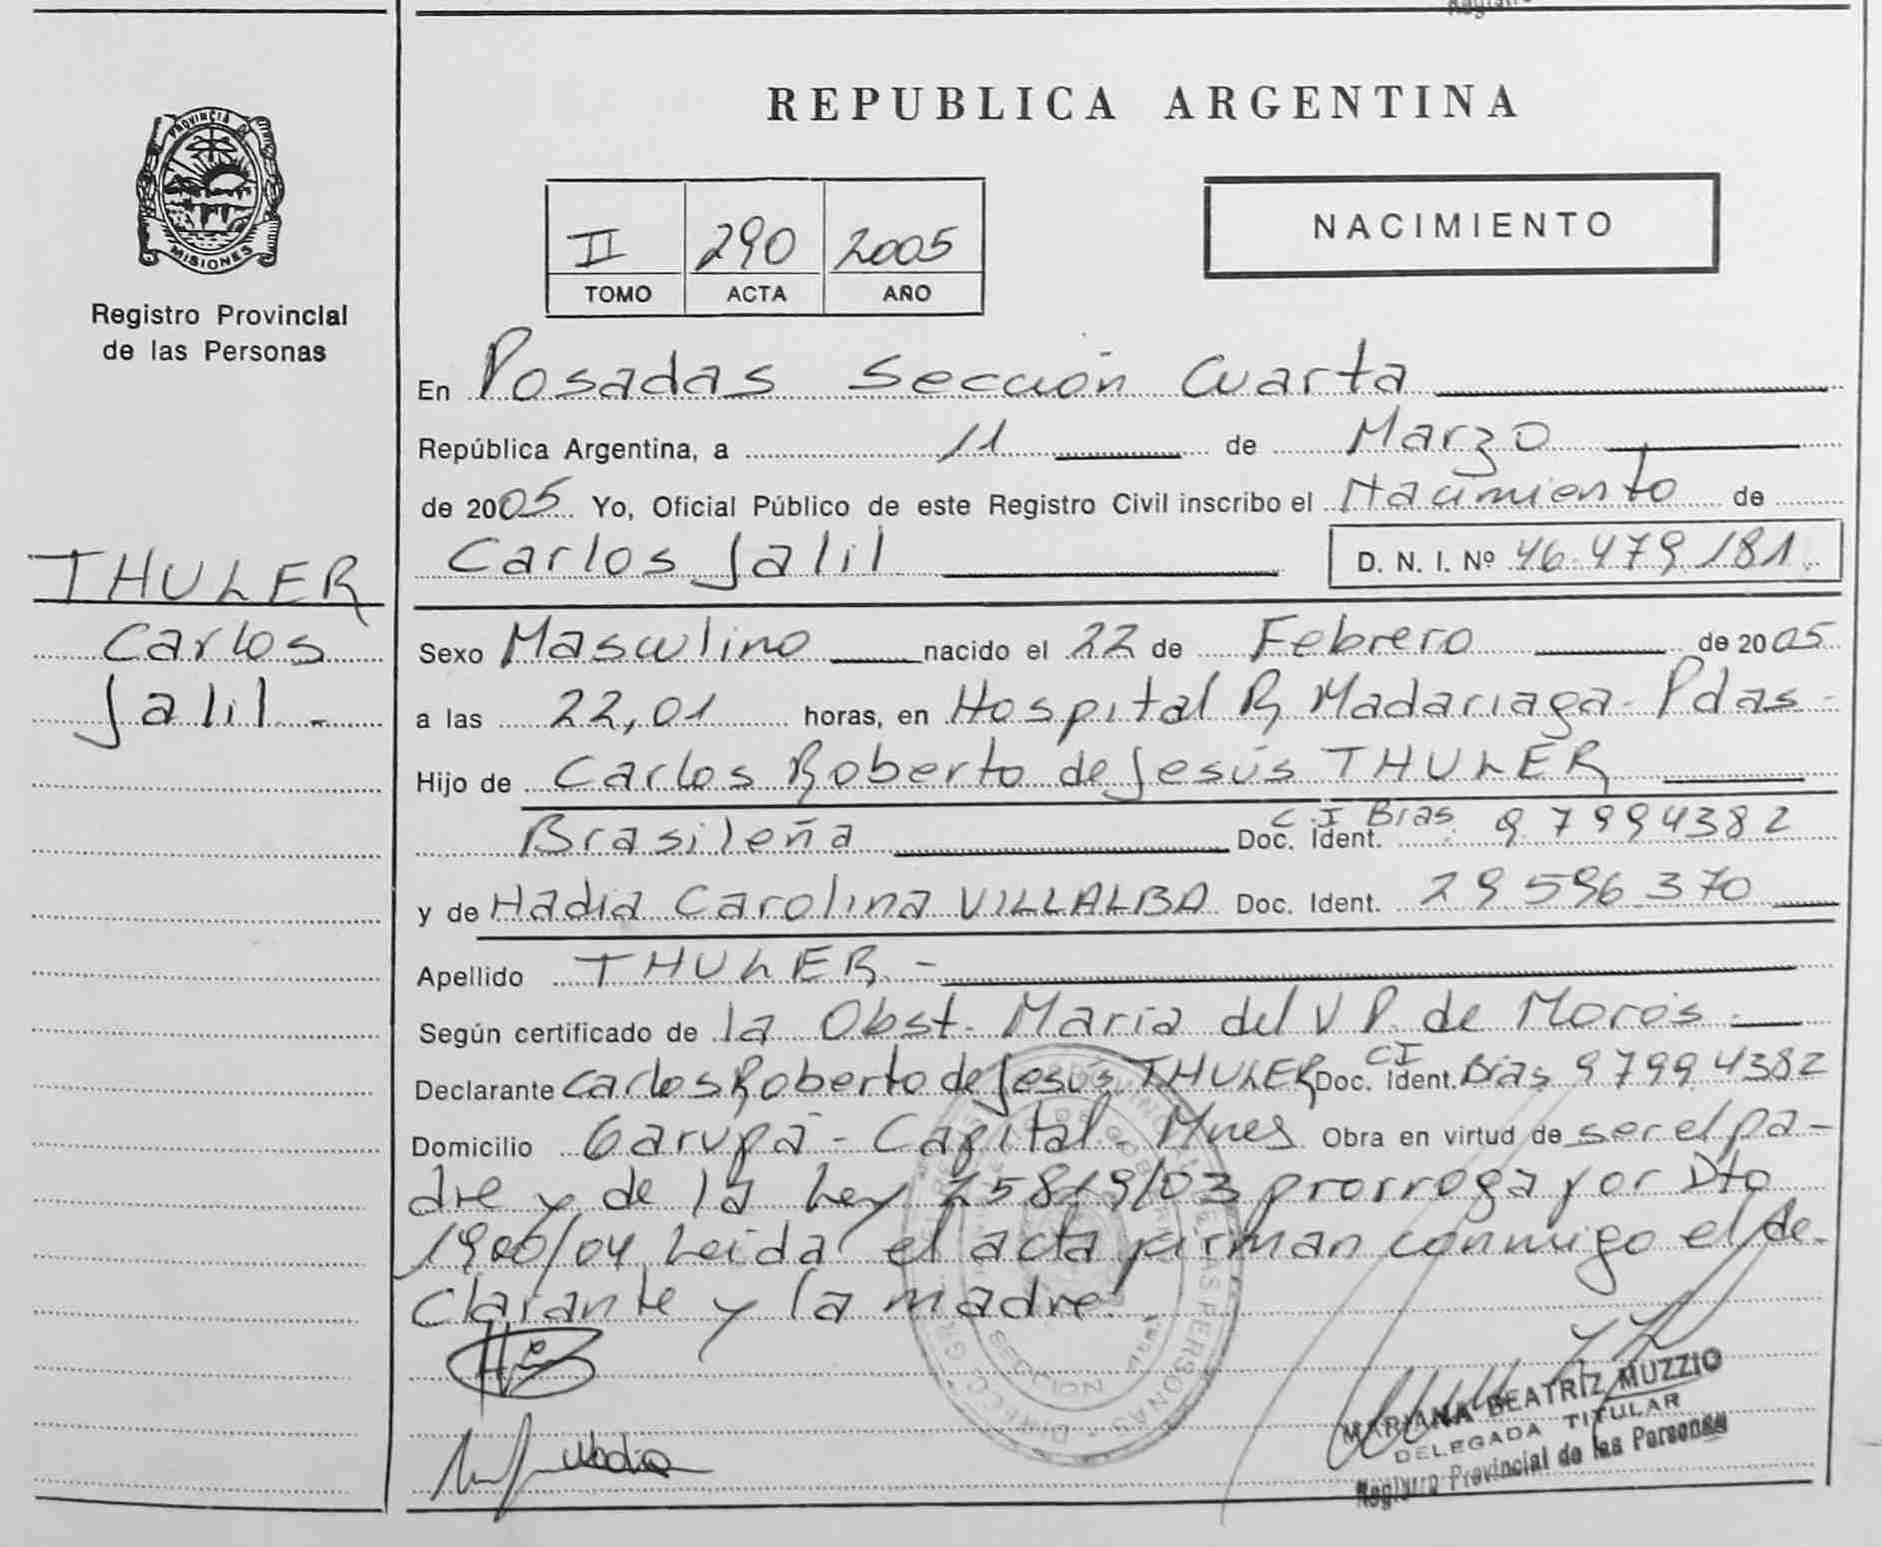 PROVINCIA DE
MISIONES
Registro Provincial
de las Personas
THULER
Carlos
Jalil.-
REPUBLICA ARGENTINA
II 290 2005
TOMO ACTA AÑO
NACIMIENTO
En Posadas Sección Cuarta
República Argentina, a 11 de Marzo
de 2005 Yo, Oficial Público de este Registro Civil inscribo el Nacimiento de
Carlos Jalil D. N. I. Nº 46.479.181.
Sexo Masculino nacido el 22 de Febrero de 2005
a las 22,01 horas, en Hospital R. Madariaga- Pdas-
Hijo de Carlos Roberto de Jesús THULER
Brasileña Doc. Ident. C.I Bras. 97994382
y de Nadia Carolina VILLALBA Doc. Ident. 29.596.370
Apellido THULER -
Según certificado de la Obst. María del V P. de Morós.
Declarante Carlos Roberto de Jesús THULER Doc. Ident. CI Bras 97994382
Domicilio Garupá - Capital. Mnes Obra en virtud de ser el pa-
dre y de la Ley 25819/03 prorroga por Dto
1900/04. Leída el acta firman conmigo el de-
clarante y la madre.
Nadia
MARIANA BEATRIZ MUZZIO
DELEGADA TITULAR
Registro Provincial de las Personas